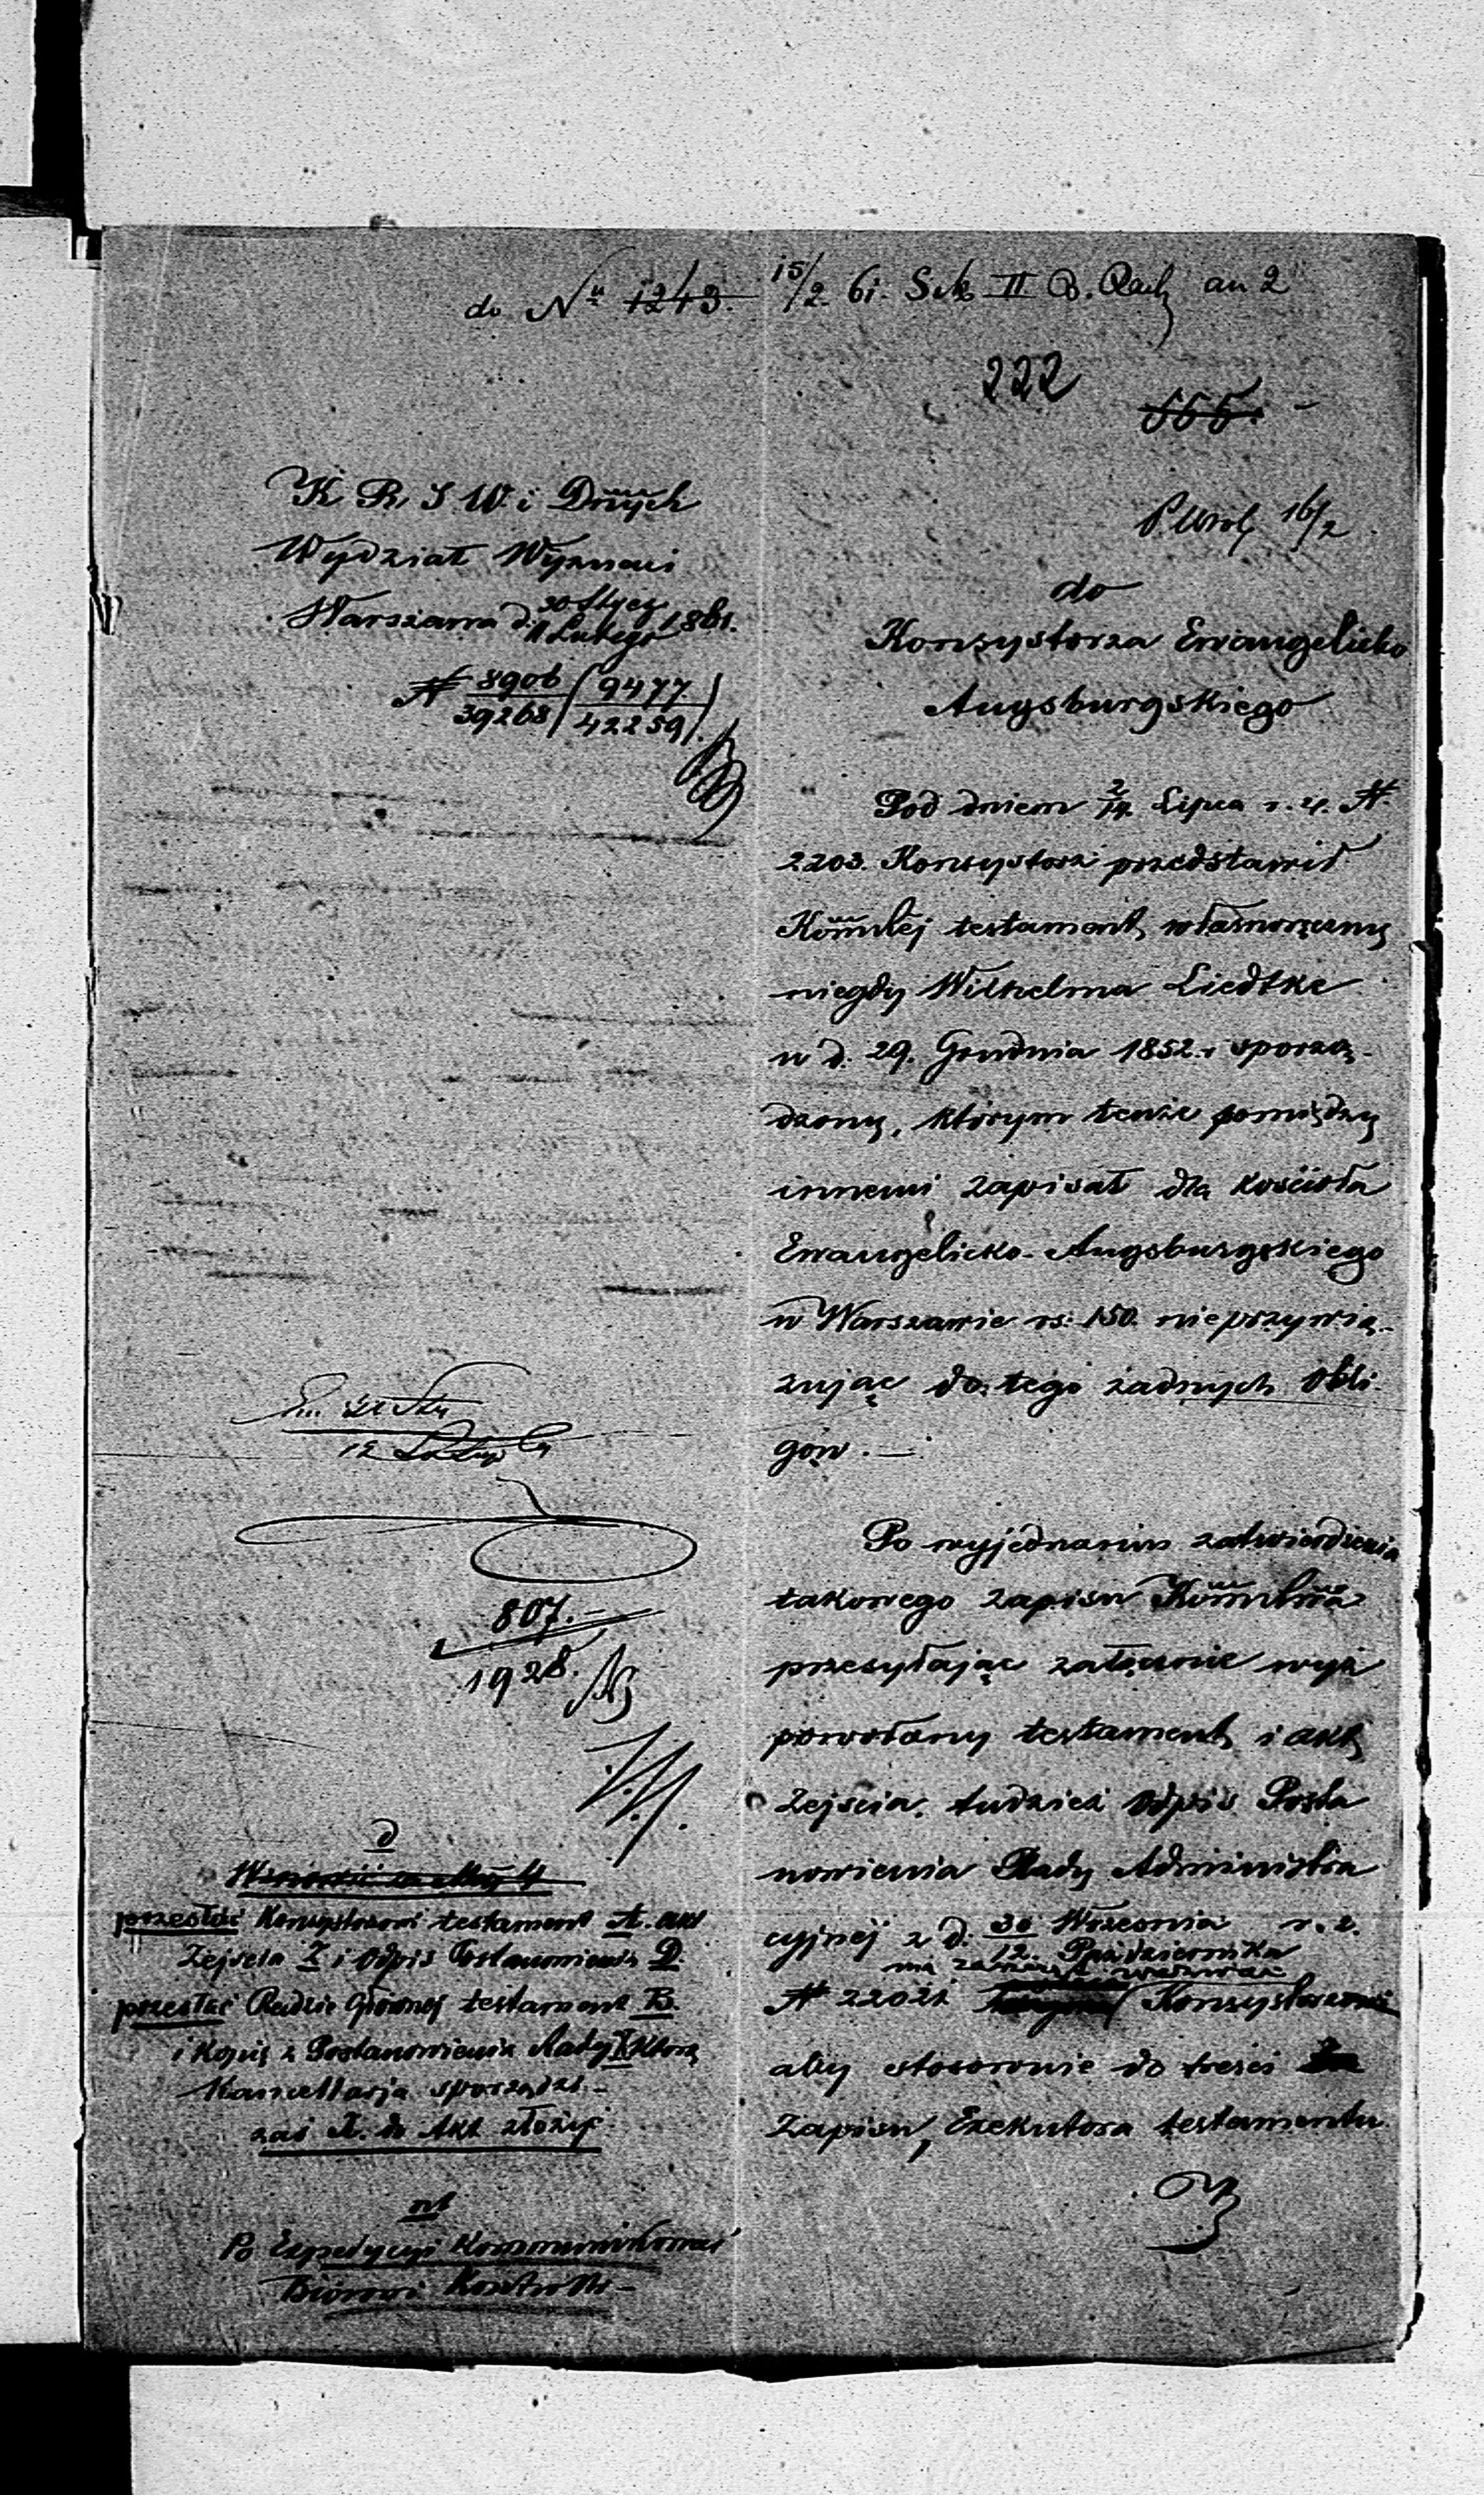 do Nu 1243. 15/2 61. Sek II B. Rach an 2
222
555.
K. R. S. W. i Dnych
Wydział Wyznań
Warszawa d. 30 Stycz / 11 Lutego 1861.
N 8906/39268 (9477/42259).
16/2
do
Konsystorza Ewangelicko
Augsburgskiego
Pod dniem 2/14. Lipca r. z. N.
2203. Konsystorz przedstawił
Kommssej testament własnoręczny
niegdy Wilhelma Liedtke
w d. 29. Grudnia 1852. r sporzą-
dzony, którym tenże pomiędzy
innemi zapisał dla kościoła
Ewangelicko-Augsburgskiego
w Warszawie rs: 150. nieprzywią-
zując do tego żadnych obli-
gów. —
Po wyjednaniu zatwierdzenia
takowego zapisu
przesyłając załącznie wyż
powołany testament i akt
zejścia, tudzież Odpis Posta
nowienia Rady Administra
cyjnej z d. 30 Września / 12. Października r. z.
N 22021 ma zaszczyt wezwać Konsystorz
aby stosownie do treści
zapisu, Exekutora testamentu
12 Lutego
807.-
1928.
d
przesłać Konsystorzowi testament A. akt
Zejścia X i Odpis Postanowienia D.
przesłać Radzie Głównej testament B.
i kopię z Postanowienia Rady którą
Kancellarja sporządzi.-
zaś A. do Akt złożyć.
nb
Po Expedycyi Kommunikować
Biórowi Kontroli-